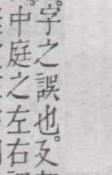 字之誤也又
中庭之左右